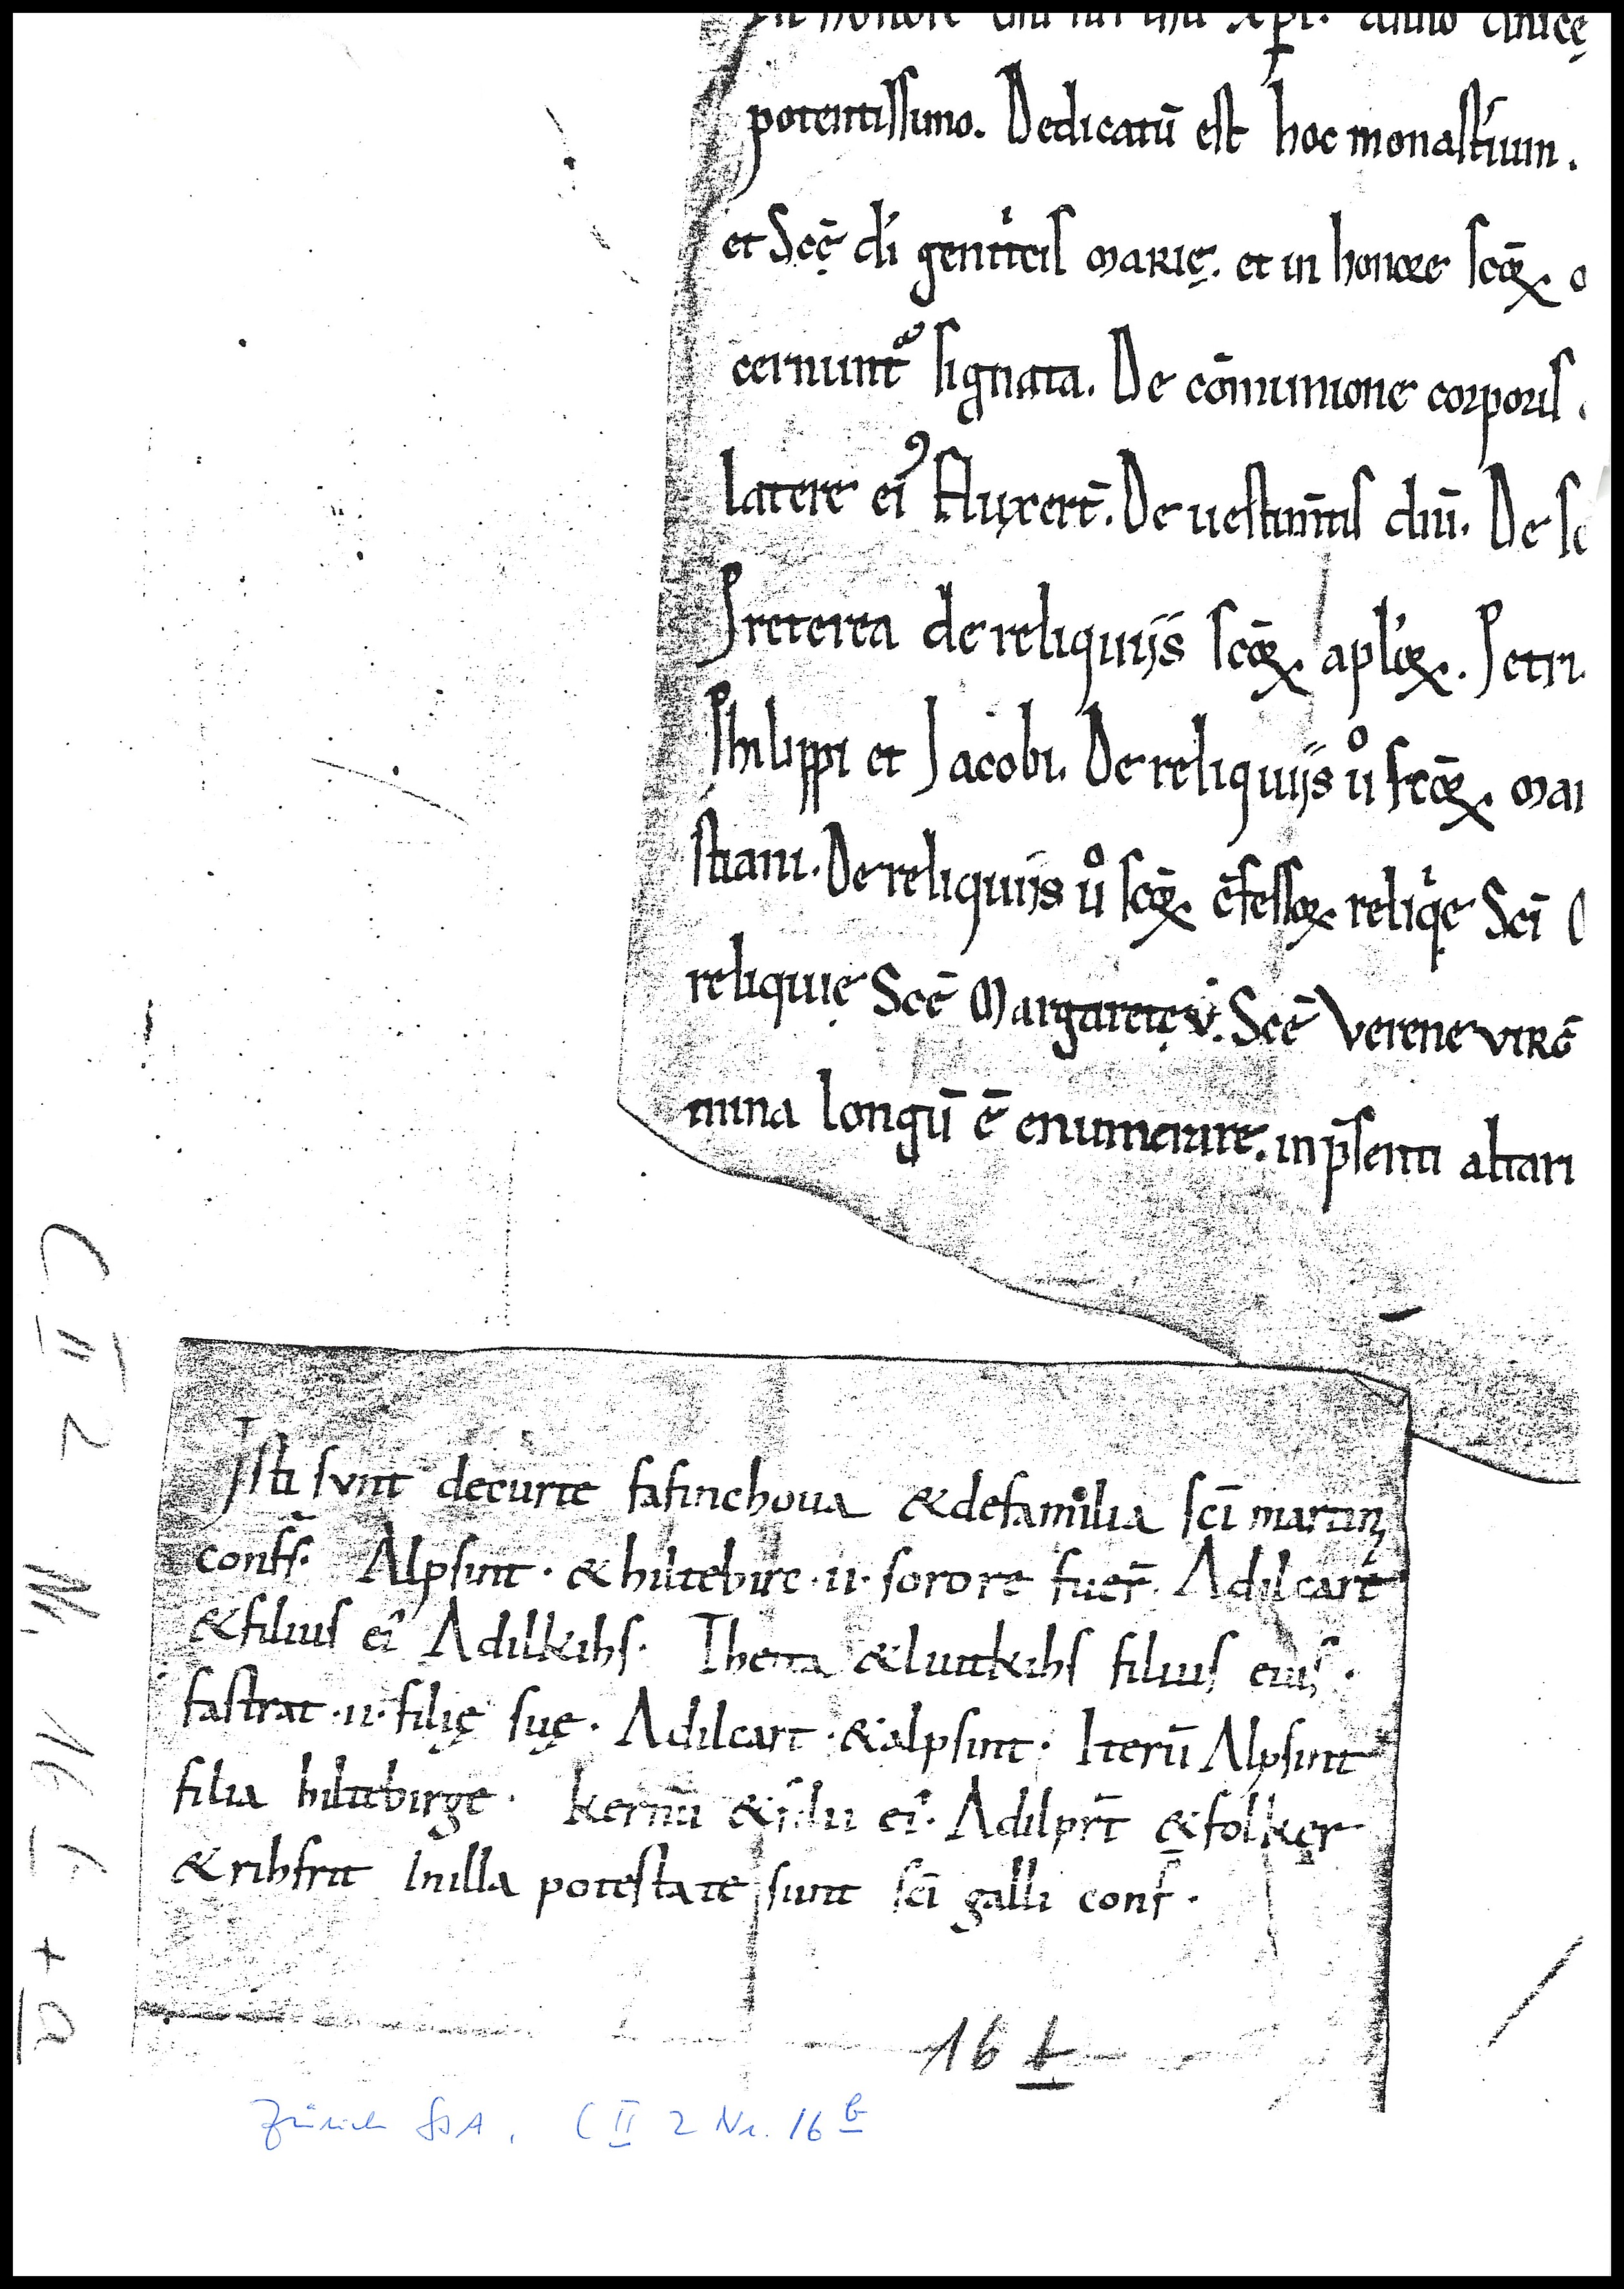 in honore dni nri ihu xpi. anno dnicę
potentissimo. Dedicatū est hoc monastíum.
et Scę̄ di genitcis marię. et in honore scōꝝ. o
cernunt᷑ signata. De cōmunione corporis.
latere ei᷒ fluxert̄. De uestim̄tis dnī. De sc
Preterea de reliquiis scōꝝ. aplóꝝ. Petri.
Philippi et Jacobi. De reliquiis ů scōꝝ. mar
stiani. De reliquiis ů scōꝝ. c̄fessoꝝ. reliqe Scī
reliquię Scē Margaretę v. Scē Verene virḡ
mina longū ē enumerare. in p̄senti altari
Isti sunt de curte fafinchoua & de familia scī martini
confs̄. Alpsint. & hiltebirc .ii. sorore fuer̄. Adilcart
& filius ei᷒ Adilkihs. Thetta & liutkihs filius eius.
fastrat .ii. filię suę. Adilcart. & alpsint. Iterū Alpsint
filia hiltibirge. kernū & filii ei᷒. Adilpr̄t & folkęr
& rihfrit In illa potestate sunt scī galli conf̄.
16 b
Zürich StA, C II 2 Nr. 16 b
C II 2 Nr. 16 +